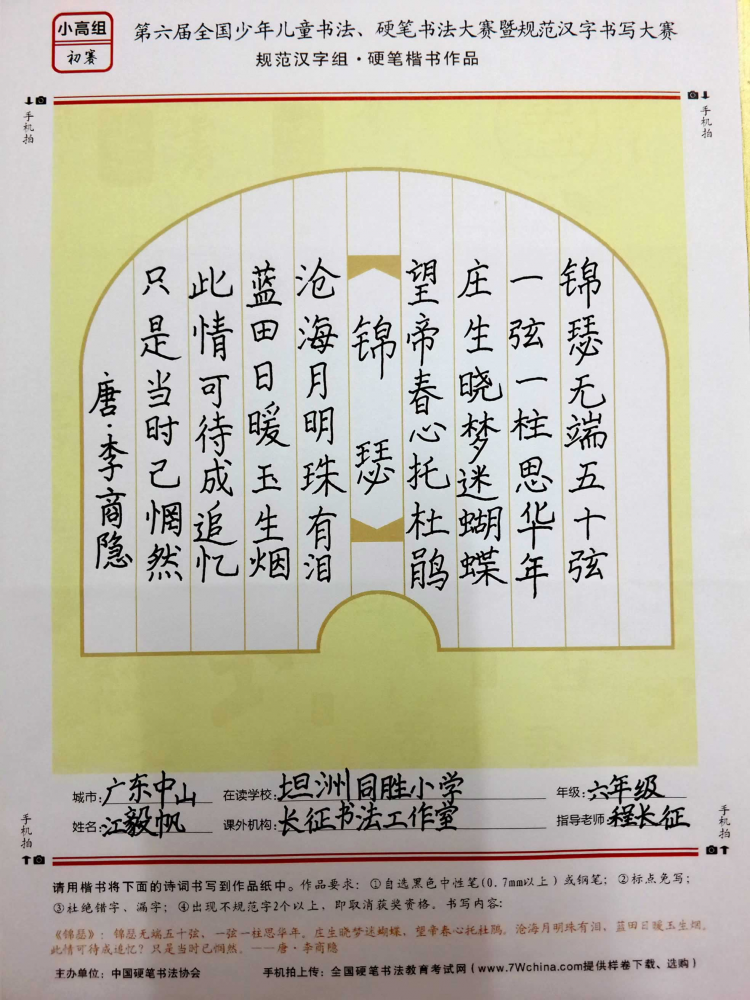 小高组
初赛
第六届全国少年儿童书法、硬笔书法大赛暨规范汉字书写大赛
规范汉字组·硬笔楷书作品
手机拍
手机拍
锦瑟无端五十弦
一弦一柱思华年
庄生晓梦迷蝴蝶
望帝春心托杜鹃
锦瑟
沧海月明珠有泪
蓝田日暖玉生烟
此情可待成追忆
只是当时已惘然
唐·李商隐
城市:广东中山 在读学校:坦洲同胜小学 年级:六年级
姓名:江毅帆 课外机构:长征书法工作室 指导老师:程长征
手机拍
手机拍
请用楷书将下面的诗词书写到作品纸中。作品要求:①自选黑色中性笔(0.7mm以上)或钢笔;②标点免写;
③杜绝错字、漏字;④出现不规范字2个以上,即取消获奖资格。书写内容:
《锦瑟》:锦瑟无端五十弦,一弦一柱思华年。庄生晓梦迷蝴蝶,望帝春心托杜鹃。沧海月明珠有泪,蓝田日暖玉生烟。
此情可待成追忆?只是当时已惘然。——唐·李商隐
主办单位:中国硬笔书法协会 手机拍上传:全国硬笔书法教育考试网(www.7Wchina.com提供样卷下载、选购)